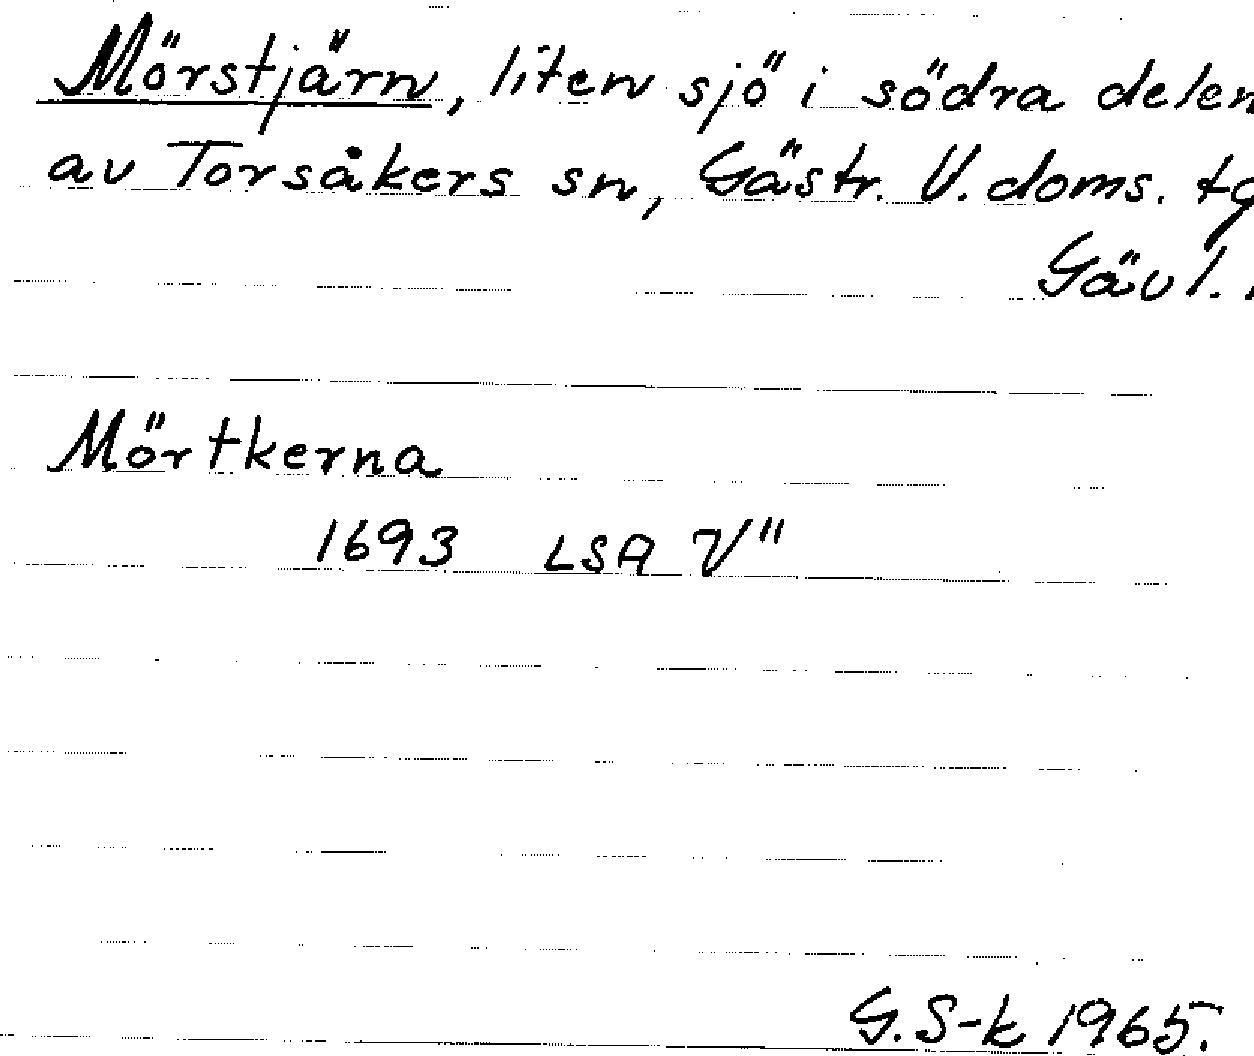 Mörstjärn, liten sjö i södra delen
av Torsåkers sn, Gästr. V. doms. tg
Gävl.
Mörtkerna
1693 LSA V"
G. S-k 1965.